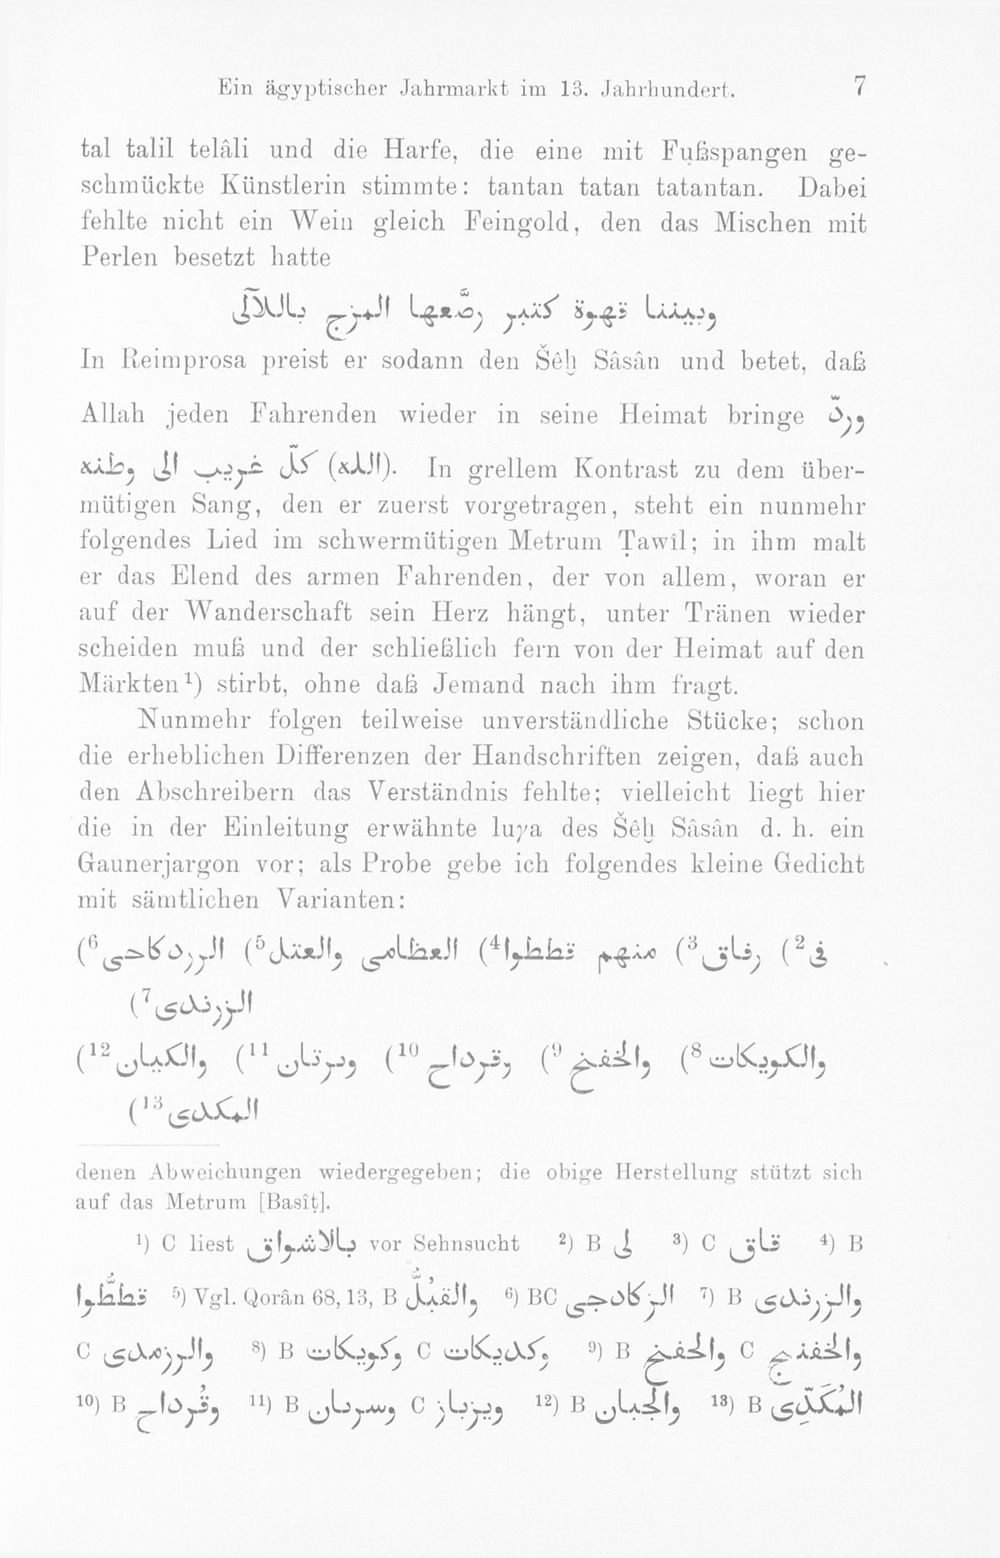 Ein ägyptischer Jahrmarkt im 13. Jahrhundert. 7
tal talil telâli und die Harfe, die eine mit Fußspangen ge-
schmückte Künstlerin stimmte: tantan tatan tatantan. Dabei
fehlte nicht ein Wein gleich Feingold, den das Mischen mit
Perlen besetzt hatte
وبيننا قهوة كتبر رصّعها المزج باللآلى
In Reimprosa preist er sodann den Šêḫ Sâsân und betet, daß
Allah jeden Fahrenden wieder in seine Heimat bringe وردّ
(اللّه) كلّ غريب الى وطنه. In grellem Kontrast zu dem über-
mütigen Sang, den er zuerst vorgetragen, steht ein nunmehr
folgendes Lied im schwermütigen Metrum Ṭawîl; in ihm malt
er das Elend des armen Fahrenden, der von allem, woran er
auf der Wanderschaft sein Herz hängt, unter Tränen wieder
scheiden muß und der schließlich fern von der Heimat auf den
Märkten¹) stirbt, ohne daß Jemand nach ihm fragt.
Nunmehr folgen teilweise unverständliche Stücke; schon
die erheblichen Differenzen der Handschriften zeigen, daß auch
den Abschreibern das Verständnis fehlte; vielleicht liegt hier
die in der Einleitung erwähnte luγa des Šêḫ Sâsân d. h. ein
Gaunerjargon vor; als Probe gebe ich folgendes kleine Gedicht
mit sämtlichen Varianten:
فى²) رفاق³) منهم قططوا⁴) العظامى والعتل⁵) الزردكاحى⁶)
الزرندى⁷)
والكويكات⁸) والخفخ⁹) وقرداح¹⁰) وبرتان¹¹) والكيان¹²)
المكدى¹³)
denen Abweichungen wiedergegeben; die obige Herstellung stützt sich
auf das Metrum [Basîṭ].
¹) C liest بالاشواق vor Sehnsucht ²) B لى ³) C قاق ⁴) B
قططُّوا ⁵) Vgl. Qorân 68,13, B والقبُلُّ ⁶) BC الزكادجى ⁷) B والزرندى
C والرزمدى ⁸) B وكويكات C وكديكات ⁹) B والخفخ C والخفنج
¹⁰) B وقُرداح ¹¹) B وسربان C ويزباز ¹²) B والجبان ¹³) B المُكَدّى